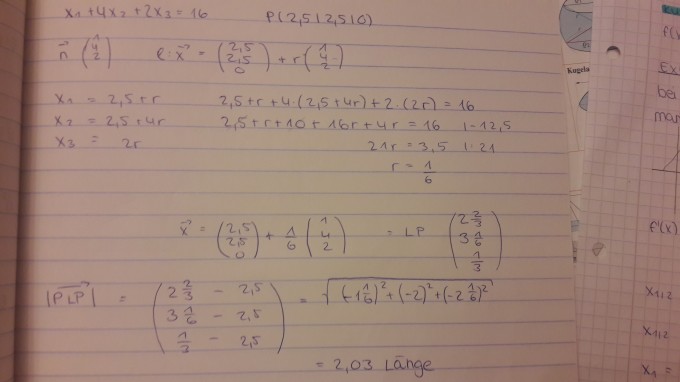 x₁ + 4x₂ + 2x₃ = 16 P(2,5|2,5|0)
n⃗ (1 4 2) e: x⃗ = (2,5 2,5 0) + r (1 4 2)
x₁ = 2,5 + r 2,5 + r + 4·(2,5 + 4r) + 2·(2r) = 16
x₂ = 2,5 + 4r 2,5 + r + 10 + 16r + 4r = 16 |-12,5
x₃ = 2r 21r = 3,5 |:21
r = 1/6
x⃗ = (2,5 2,5 0) + 1/6 (1 4 2) = LP (2 2/3 3 1/6 1/3)
|PLP⃗| = (2 2/3 - 2,5 3 1/6 - 2,5 1/3 - 2,5) = √((-1 1/6)² + (-2)² + (-2 1/6)²)
= 2,03 Länge
Kugeln
bei
f'(x)
x₁,₂
x₁,₂
x₁ =